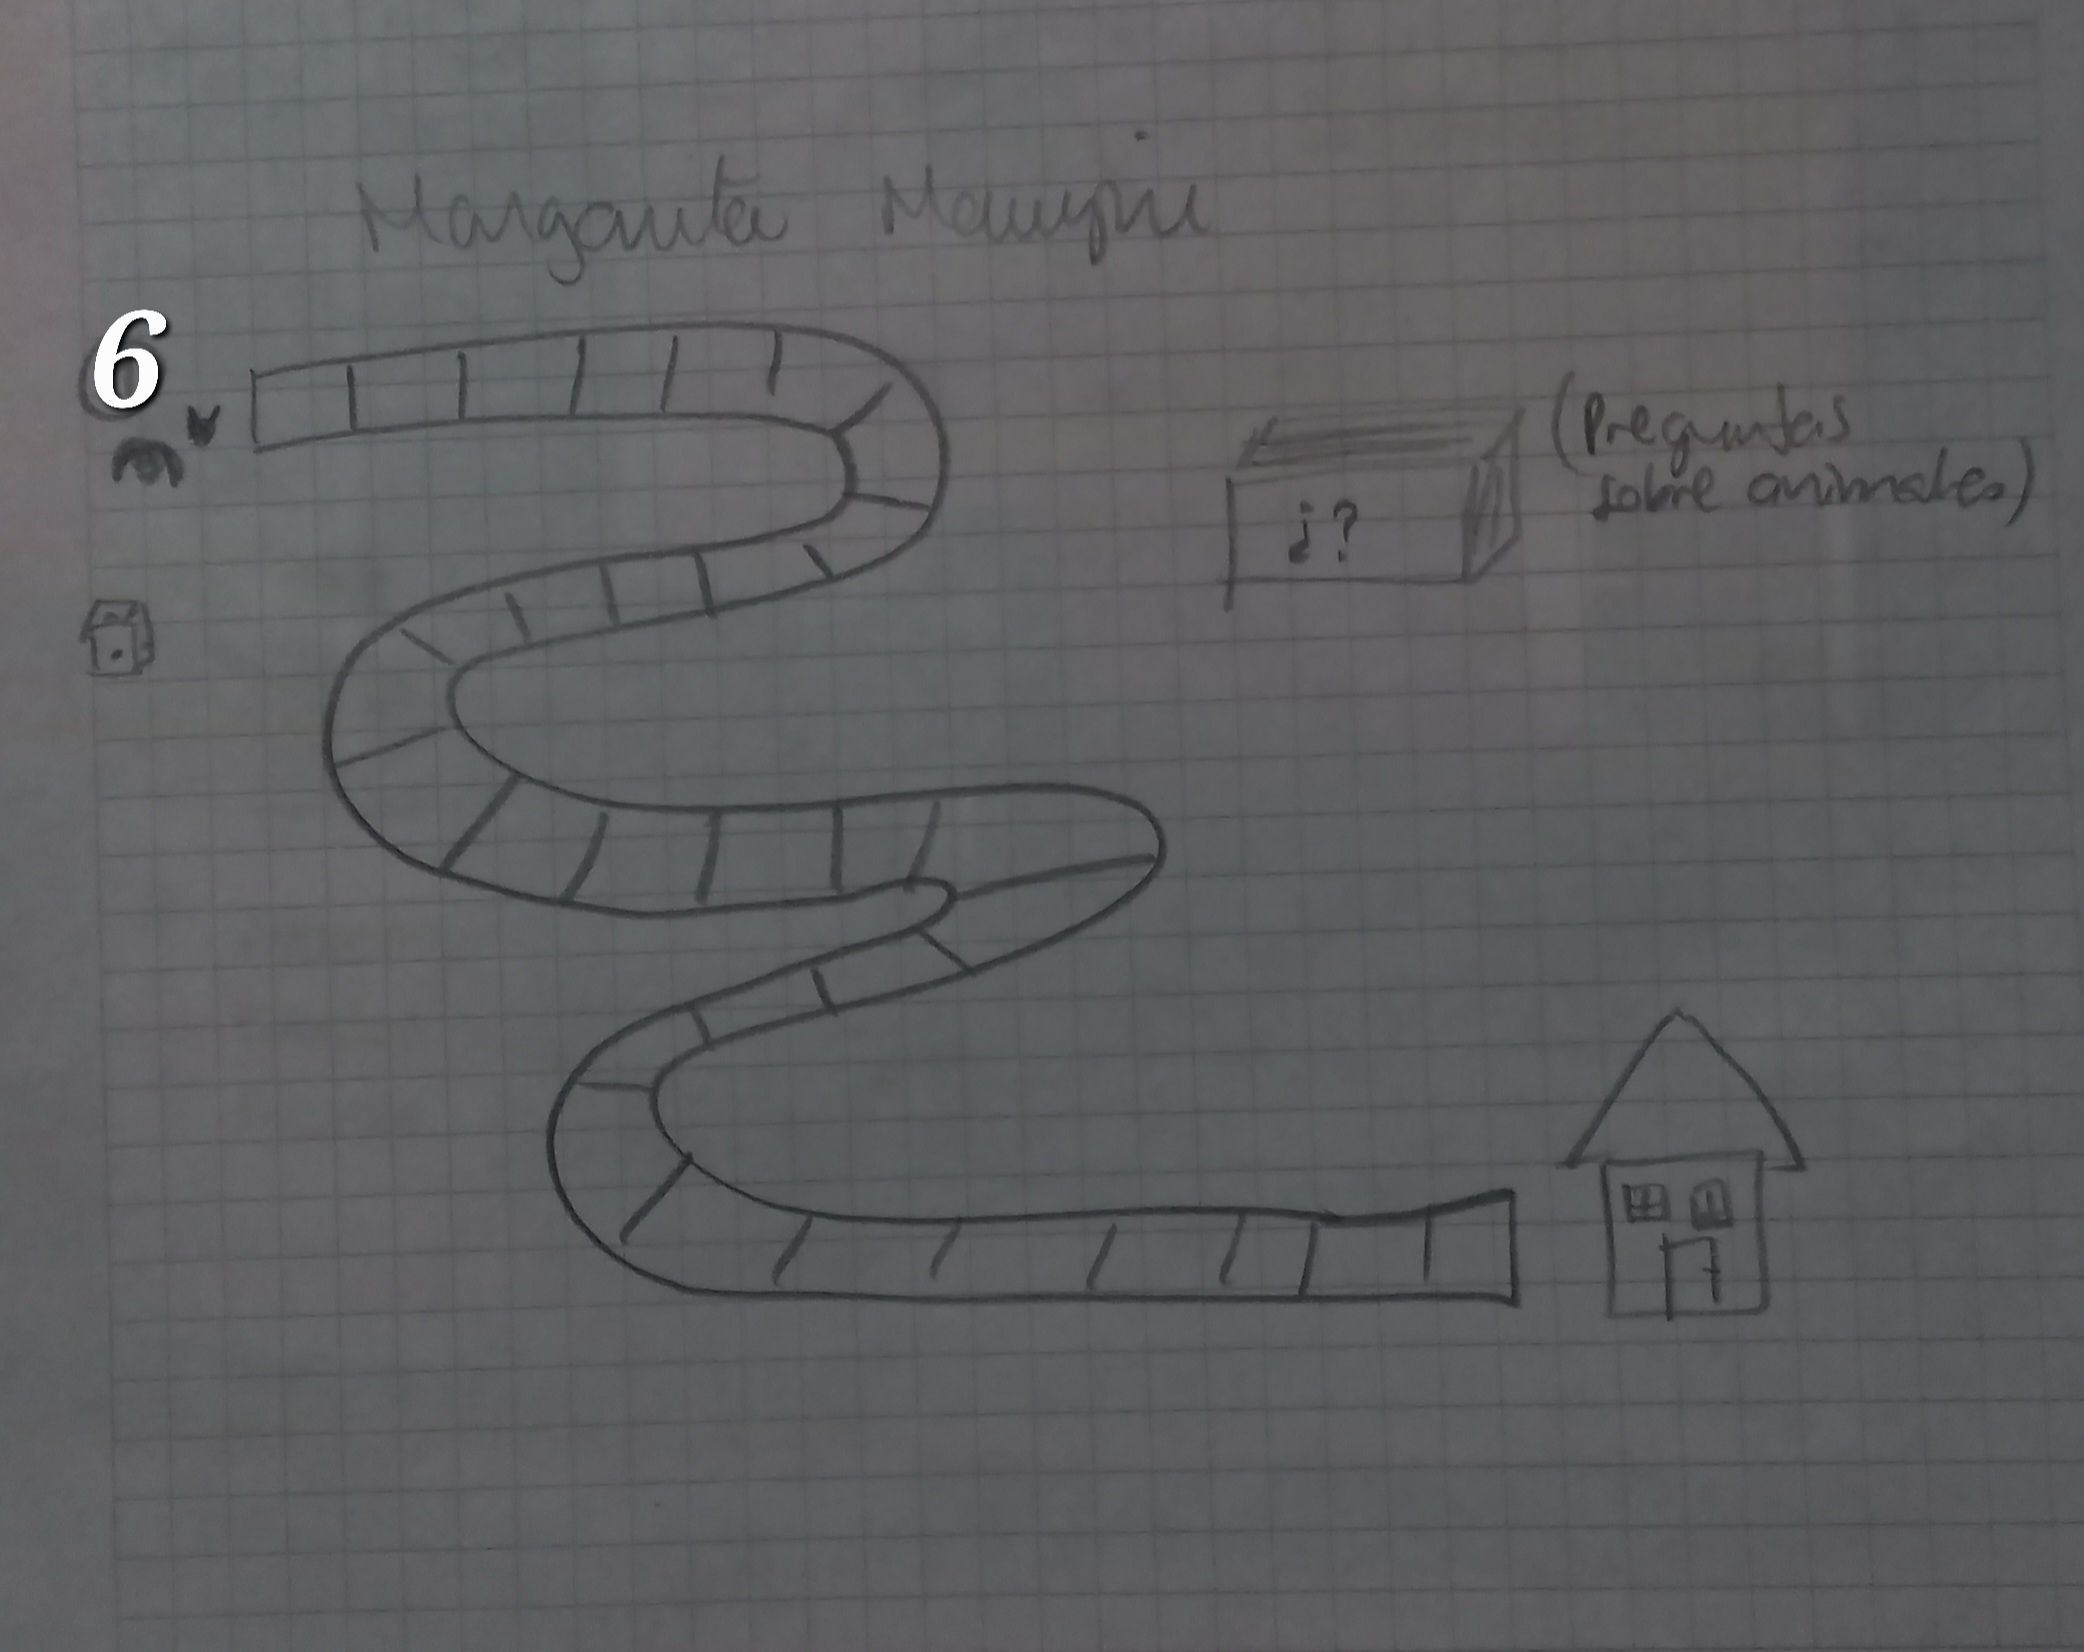 Margarita
6
¿?
(Preguntas
sobre animales)